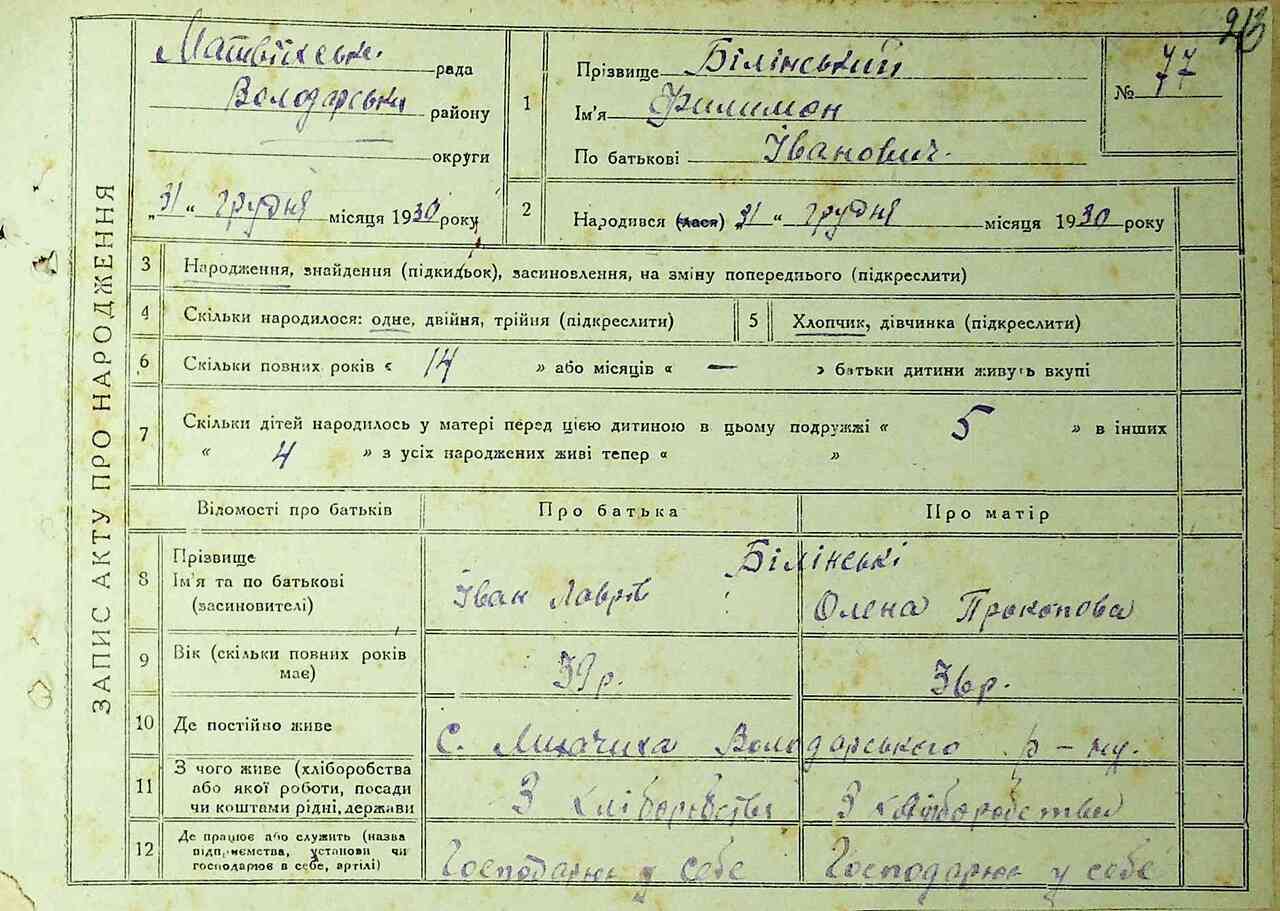 213
ЗАПИС АКТУ ПРО НАРОДЖЕННЯ
рада
Володарськи району
округи
„31“ грудня місяця 1930 року
1
Прізвище Білінський
Ім'я Филимон
По батькові Іванович.
№ 77
2 Народився (лася) „31“ грудня місяця 1930 року
3 Народження, знайдення (підкидьок), засиновлення, на зміну попереднього (підкреслити)
4 Скільки народилося: одне, двійня, трійня (підкреслити) 5 Хлопчик, дівчинка (підкреслити)
6 Скільки повних років « 14 » або місяців « — » батьки дитини живуть вкупі
7 Скільки дітей народилось у матері перед цією дитиною в цьому подружжі « 5 » в інших
« 4 » з усіх народжених живі тепер « »
Відомості про батьків Про батька Про матір
8 Прізвище Білінські
Ім'я та по батькові Іван Лаврів Олена Прокопова
(засиновителі)
9 Вік (скільки повних років має) 39 р. 36 р.
10 Де постійно живе С. Володарського р-ну.
11 З чого живе (хліборобства
або якої роботи, посади
чи коштами рідні, держави
З хліборобства З хліборобства
12 Де працює або служить (назва
підприємства, установи чи
господарює в себе, артілі)
Господарює у себе Господарює у себе